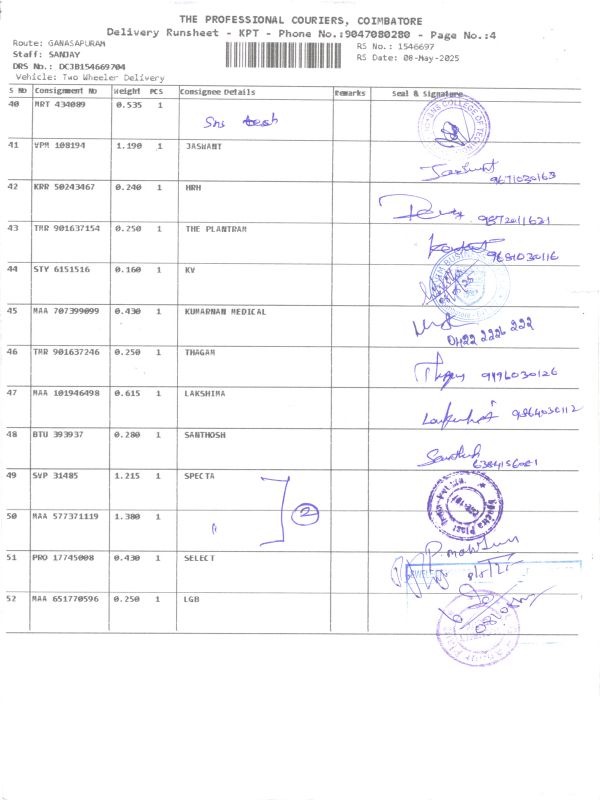 THE PROFESSIONAL COURIERS, COIMBATORE
Delivery Runsheet - KPT - Phone No.:9047080280 - Page No.:4
Route: GANASAPURAM
RS No.: 1546697
Staff: SANJAY
RS Date: 08-May-2025
DRS No.: DCJB154669704
Vehicle: Two Wheeler Delivery
S No Consignment No Weight PCS Consignee Details Remarks Seal & Signature
40 MRT 434089 0.535 1 Sns
41 VPM 108194 1.190 1 JASWANT
Jaswant 9671030163
42 KRR 50243467 0.240 1 HRH
9872011621
43 TMR 901637154 0.250 1 THE PLANTRAM
9681030116
44 STY 6151516 0.160 1 KV
45 MAA 707399099 0.430 1 KUMARNAN MEDICAL
0422 2226 222
46 TMR 901637246 0.250 1 THAGAM
9496030126
47 MAA 101946498 0.615 1 LAKSHIMA
9864030112
48 BTU 393937 0.280 1 SANTHOSH
Santhosh
49 SVP 31485 1.215 1 SPECTA
2
50 MAA 577371119 1.380 1 "
51 PRO 17745008 0.430 1 SELECT
52 MAA 651770596 0.250 1 LGB